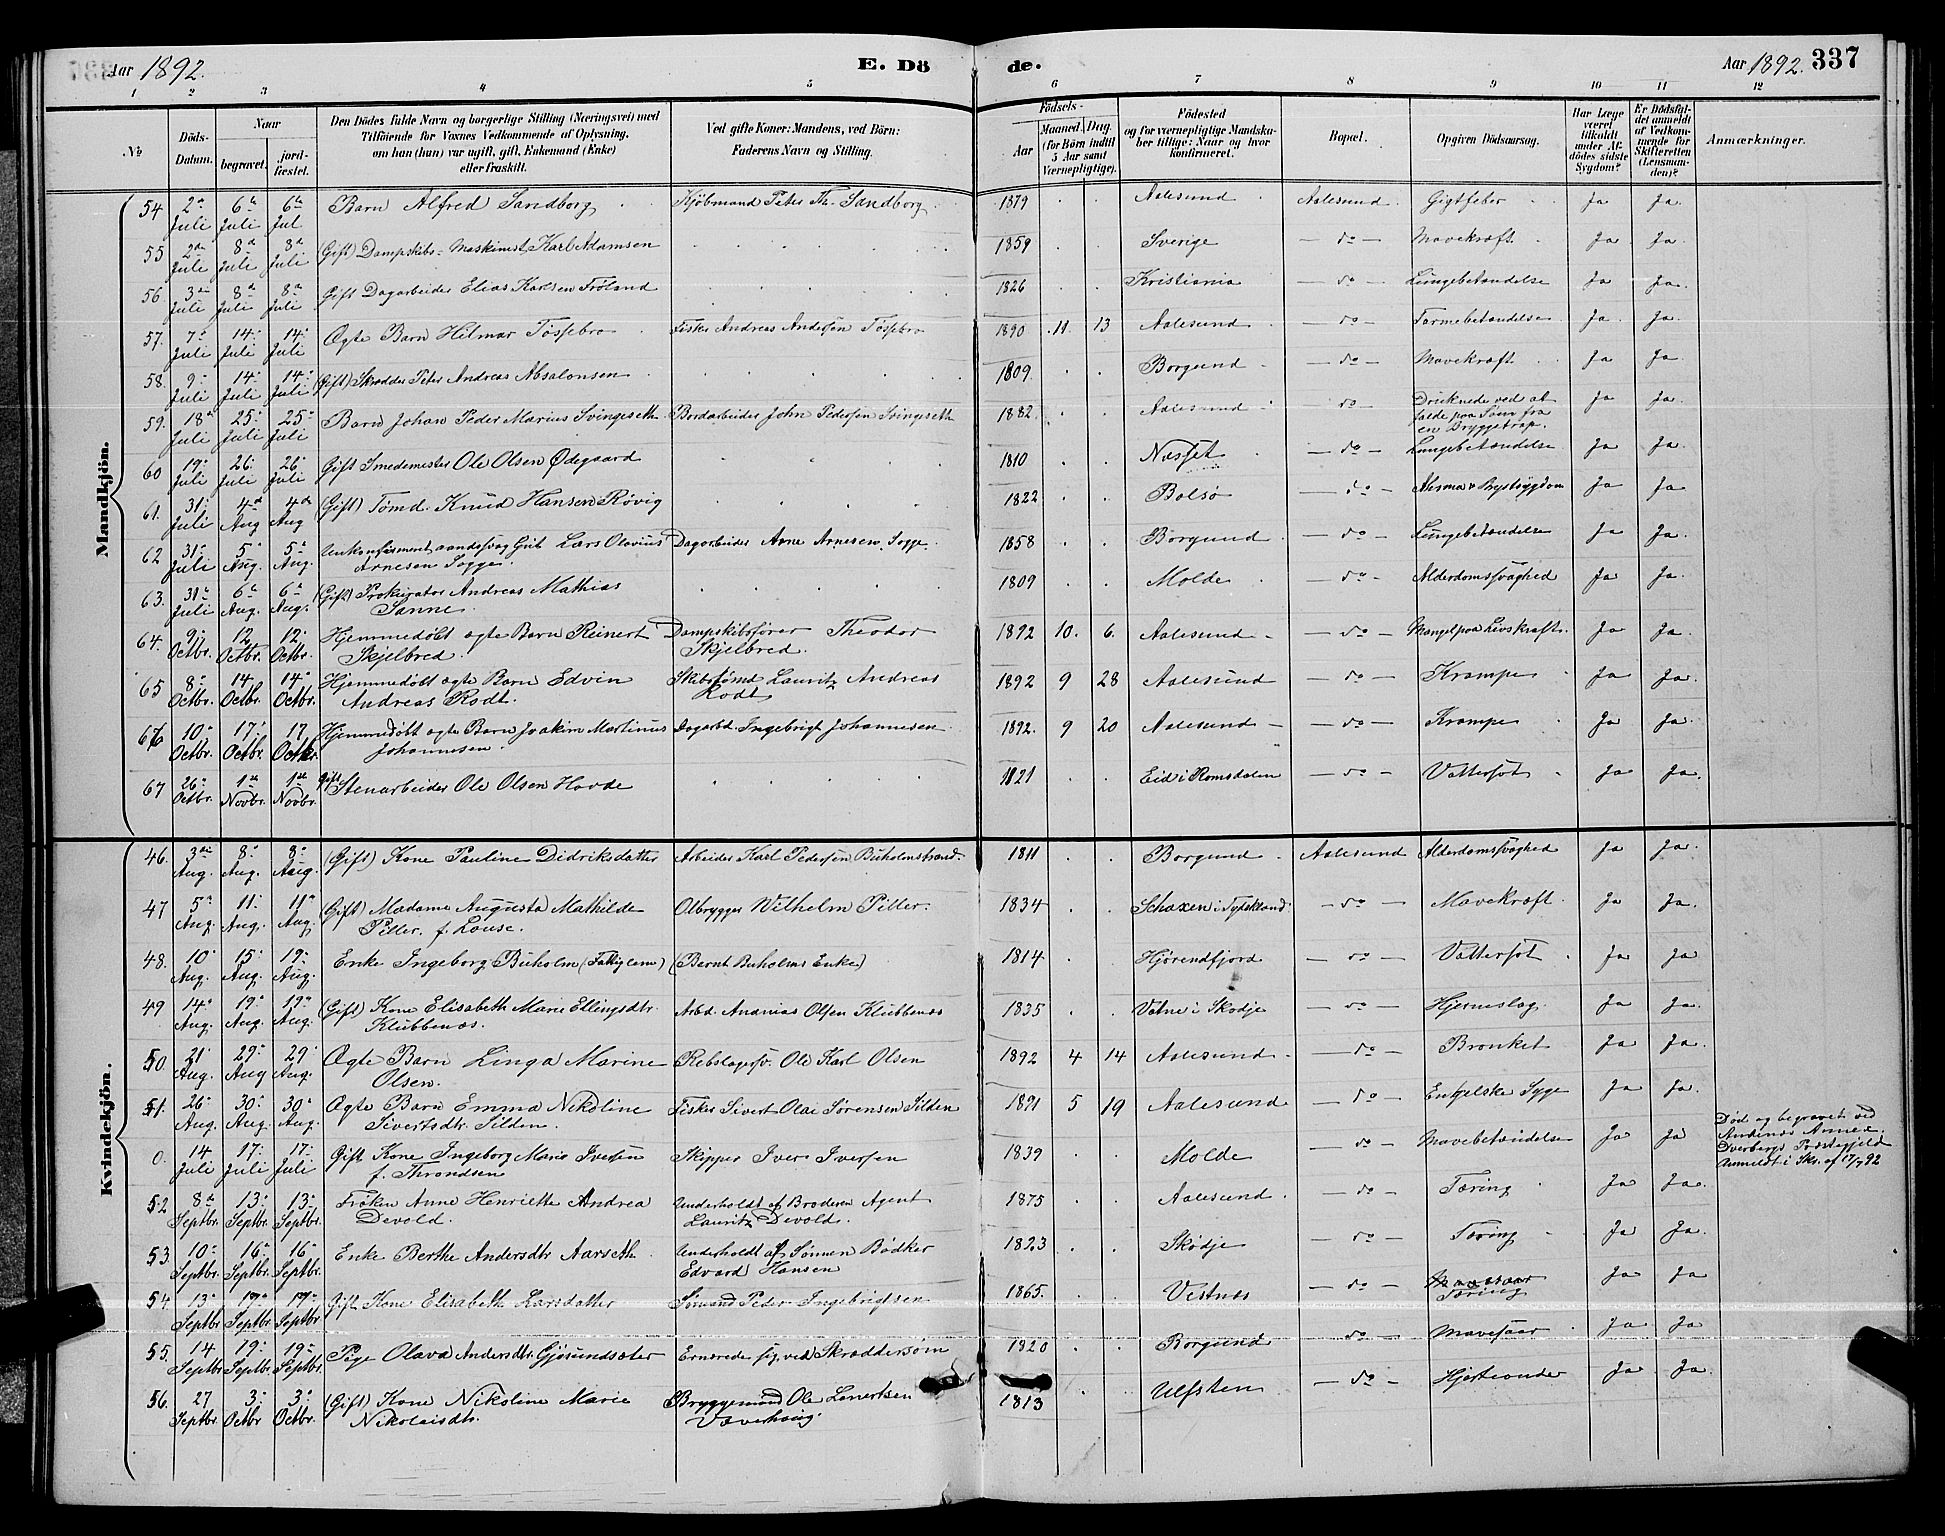 Aar 1892. E. Dö de. Aar 1892. 337
1 2 3 4 5 6 7 8 9 10 11 12
No
Döds-Datum.
Naar
begravet.
jord-fæstet.
Den Dödes fulde Navn og borgerlige Stilling (Næringsvei) med
Tilföiende for Voxnes Vedkommende af Oplysning,
om han (hun) var ugift, gift, Enkemand (Enke)
eller fraskilt.
Ved gifte Koner: Mandens, ved Börn:
Faderens Navn og Stilling.
Födsels-
Aar
Maaned. Dag.
(for Börn indtil
5 Aar samt
Værnepligtige).
Födested
og for værnepligtige Mandska-
ber tillige: Naar og hvor
konfirmeret.
Bopæl.
Opgiven Dödsaarsag.
Har Læge
været
tilkaldt
under Af-
dödes sidste
Sygdom?
Er Dödsfal-
det anmeldt
af Vedkom-
mende for
Skifteretten
(Lensman-
den)?
Anmærkninger.
Mandkjön.
54 2den Juli 6te Juli 6te Jul Barn Alfred Sandborg Kjöbmand Peter Th. Sandborg 1879 Aalesund Aalesund Gigtfeber Ja Ja
55 2den Juli 8de Juli 8de Juli (Gift) Dampskibs-Maskinist Karl Adamsen 1859 Sverige do Mavekræft Ja Ja
56 3die Juli 8de Juli 8de Juli Gift Dagarbeider Elias Karlsen Fröland 1826 Kristiania do Lungebetændelse Ja Ja
57. 7de Juli 14. Juli 14. Juli Ægte Barn Hilmar Tössebro Fisker Andreas Andersen Tösebro 1890 11 13 Aalesund do Tarmebetændelse Ja Ja
58. 9. Juli 14. Juli 14. Juli (Gift) Skrædder Peter Andreas Absalonsen 1809 Borgund do Mavekræft Ja Ja
59. 18de Juli 25. Juli 25. Juli Barn Johan Peder Marius Svingeseth Bordarbeider John Pedersen Svingeseth 1882 Aalesund do Druknede ved at
falde paa Söen fra
en Bryggetrap. Ja Ja
60 19. Juli 26. Juli 26 Juli Gift Smedemester Ole Olsen Ødegaard 1810 Næsset do Lungebetændelse Ja Ja
61. 31. Juli 4de Aug 4de Aug (Gift) Tömd. Knud Hansen Rövig 1822 Bolsö do Astma & Brystsygdom Ja Ja
62 31. Juli 5. Aug. 5. Aug. Unkonfirmert aandssvag Gut Lars Olavius
Arnesen Sogge. Dagarbeider Arne Arnesen Sogge 1858 Borgund do Lungebetændelse Ja Ja
63. 31. Juli 6te Aug. 6te Aug. (Gift) Prokurator Andreas Mathias
Sanne 1809 Molde do Alderdomssvaghed Ja Ja
64. 9. Octbr. 12 Octbr. 12. Octbr. Hjemmedöbt ægte Barn Reinert
Skjelbred. Dampskibsförer Theodor
Skjelbred. 1892 10. 6. Aalesund do Mangel paa Livskraft. Ja Ja
65 8. Octbr. 14 Octbr. 14. Octbr. Hjemmedöbt ægte Barn Edvin
Andreas Rodt. Skibstömd Lauritz Andreas
Rodt 1892 9 28 Aalesund do Krampe Ja Ja.
66 10. Octbr. 17. Octbr. 17. Octbr. Hjemmedöbt ægte Barn Joakim Martinus
Johannesen Dagarbd. Ingebrigt Johannesen 1892. 9 20 Aalesund do Krampe Ja Ja.
67 26. Octbr. 1ste Novbr. 1ste Novbr. Gift Stenarbeider Ole Olsen Hovde 1821 Eid i Romsdalen do Vattersot Ja Ja
Kvindekjön.
46. 3die Aug. 8. Aug. 8. Aug. (Gift) Kone Pauline Didriksdatter Arbeider Karl Pedersen Buholmstrand 1811 Borgund Aalesund Alderdomssvaghed Ja Ja.
47 5te Aug. 11. Aug. 11te Aug. (Gift) Madame Augusta Mathilde
Piller. f. Louse. Ölbrygger Wilhelm Piller. 1834 Schaxen i Tydskland do Mavekræft Ja Ja
48. 10. Aug. 15. Aug. 19. Aug. Enke Ingeborg Buholm (Fattiglem) (Bernt Buholms Enke) 1814 Hjörendfjord do Vattersot Ja Ja
49 14. Aug. 19. Aug. 19. Aug. (Gift) Kone Elisabeth Marie Ellingsdtr.
Klubbenæs. Arbd. Andreas Olsen Klubbenæs 1835 Vatne i Skodje do Hjerneslag Ja Ja
50. 21. Aug. 29. Aug 29. Aug. Ægte Barn Linga Marine
Olsen. Rebslagersv. Ole Karl Olsen 1892 4 14 Aalesund do Bronket Ja Ja.
51. 26. Aug. 30. Aug. 30. Aug. Ægte Barn Emma Nikoline
Sivertsdtr. Silden. Fisker Sivert Olai Sörensen Silden 1891 5 19 Aalesund do Engelske Syge Ja Ja.
0. 14 Juli 17. Juli 17. Juli Gift Kone Ingeborg Marie Iversen
f. Throndsen Skipper Iver Iversen 1839 Molde do Mavebetændelse Ja Ja Död og begravet ved
Andenæs Annex.
Dverbergs Præstegjeld
Anmeldt i Skr. af 17/7 92
52 8de Septbr. 13. Septbr. 13. Septbr. Fröken Anne Henriette Andrea
Devold. Underholdt af Broderen Agent
Lauritz Devold. 1875 Aalesund do Tæring Ja Ja.
53 10. Septbr. 16. Septbr. 16 Septbr. Enke Berthe Andersdtr Aarseth Underholdt af Sönnen Bödker
Edvard Hansen 1823 Skodje do Tæring Ja Ja.
54. 13. Septbr. 17. Septbr. 17. Septbr. Gift Kone Elisabeth Larsdatter Sömand Peder Ingebrigtsen 1865. Vestnæs do Mavesaar
Tæring Ja Ja
55. 14 Septbr. 19. Septbr. 19. Septbr. Pige Olava Andersdtr Gjösundsæter Ernærede sig ved Skræddersöm 1820 Borgund do Mavesaar Ja Ja
56. 27 Septbr. 3. Octbr 3. Octbr. (Gift) Kone Nikoline Marie
Nikolaisdtr. Bryggemand Ole Lenertsen
Vaverhaug. 1813 Ulfsten do Hjerteonde Ja Ja.